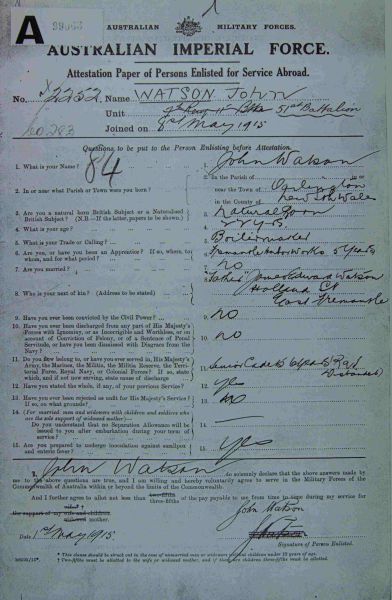 A
AUSTRALIAN MILITARY FORCES.
AUSTRALIAN IMPERIAL FORCE.
Attestation Paper of Persons Enlisted for Service Abroad.
No. 2252 Name WATSON JOHN
Unit 51st Battalion
Joined on 1st May 1915
Questions to be put to the Person Enlisting before Attestation.
84
1. What is your Name? 1. John Watson
2. In or near what Parish or Town were you born? 2. In the Parish of in or
near the Town of
in the County of New South Wales
3. Are you a natural born British Subject or a Naturalised 3. Natural Born
British Subject? (N.B.—If the latter, papers to be shown.)
4. What is your age? 4.
5. What is your Trade or Calling? 5. Boilermaker
6. Are you, or have you been an Apprentice? If so, where, to 6. Fremantle 5 years
whom, and for what period?
7. Are you married? 7. No
8. Who is your next of kin? (Address to be stated) 8. "Father" James Edward Watson
Holland St
East Fremantle
9. Have you ever been convicted by the Civil Power? 9. No
10. Have you ever been discharged from any part of His Majesty's 10. No
Forces with Ignominy, or as Incorrigible and Worthless, or on
account of Conviction of Felony, or of a Sentence of Penal
Servitude, or have you been dismissed with Disgrace from the
Navy?
11. Do you now belong to, or have you ever served in, His Majesty's 11. Senior Cadets
Army, the Marines, the Militia, the Militia Reserve, the Terri-
torial Force, Royal Navy, or Colonial Forces? If so, state
which, and if not now serving, state cause of discharge
12. Have you stated the whole, if any, of your previous Service? 12. Yes
13. Have you ever been rejected as unfit for His Majesty's Service? 13. No
If so, on what grounds?
14. (For married men and widowers with children and soldiers who 14. —
are the sole support of widowed mother)—
Do you understand that no Separation Allowance will be
issued to you after embarkation during your term of
service?
15. Are you prepared to undergo inoculation against smallpox 15. Yes
and enteric fever?
I, John Watson, do solemnly declare that the above answers made by
me to the above questions are true, and I am willing and hereby voluntarily agree to serve in the Military Forces of the
Commonwealth of Australia within or beyond the limits of the Commonwealth.
And I further agree to allot not less than two-fifths of the pay payable to me from time to time during my service for
three-fifths
the support of my wife and children.
widowed mother.
John Watson
Date 1st May 1915
Signature of Person Enlisted.
* This clause should be struck out in the case of unmarried men or widowers without children under 18 years of age.
† Two-fifths must be allotted to the wife or widowed mother, and if there are children three-fifths must be allotted.